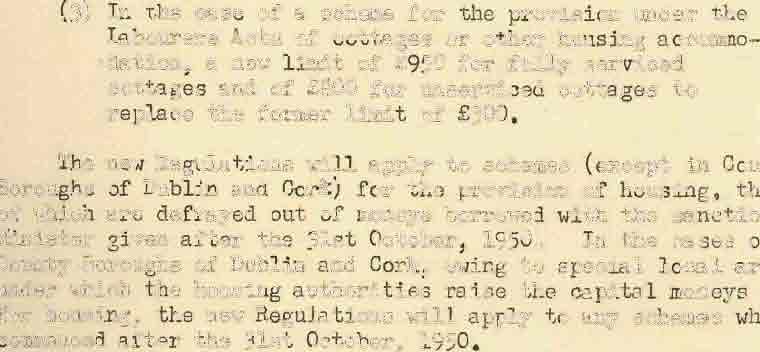 (3) In the case of a scheme for the provision under the
Labourers Acts of cottages or other housing accommo-
dation, a new limit of £950 for fully serviced
cottages and of £800 for unserviced cottages to
replace the former limit of
The new Regulations will apply to schemes (except in Cou
Boroughs of Dublin and Cork) for the provision of housing, th
of which are defrayed out of moneys borrowed with the sanctio
Minister given after the 31st October, 1950. In the cases o
County Boroughs of Dublin and Cork, owing to special local ar
under which the housing authorities raise the capital moneys
for housing, the new Regulations will apply to any schemes wh
commenced after the 31st October, 1950.